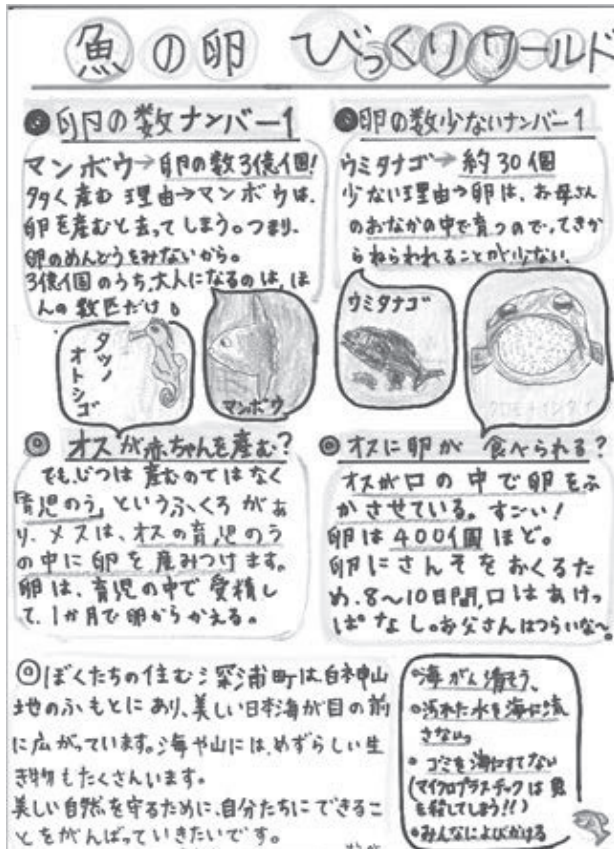 魚の卵 びっくりワールド
◎卵の数ナンバー1
マンボウ→卵の数3億個!
多く産む理由→マンボウは、
卵を産むと去ってしまう。つまり、
卵のめんどうをみないから。
3億個のうち、大人になるのは、ほ
んの数匹だけ。
タツノ
オトシゴ
マンボウ
◎卵の数少ないナンバー1
ウミタナゴ→約30個
少ない理由→卵は、お母さん
のおなかの中で育つので、てきか
らねらわれることが少ない。
ウミタナゴ
◎オスが赤ちゃんを産む?
でも、じつは産むのではなく
「育児のう」というふくろがあ
り、メスは、オスの育児のう
の中に卵を産みつけます。
卵は、育児の中で受精し
て、1か月で卵からかえる。
◎オスに卵が食べられる?
オスが口の中で卵をふ
かさせている。すごい!
卵は400個ほど。
卵にさんそをおくるた
め、8〜10日間、口はあけっ
ぱなし。お父さんはつらいな〜。
◎ぼくたちの住む深浦町は、白神山
地のふもとにあり、美しい日本海が目の前
に広がっています。海や山には、めずらしい生
き物もたくさんいます。
美しい自然を守るために、自分たちにできるこ
とをがんばっていきたいです。
•海がん清そう、
•汚れた水を海に流
さない。
•ゴミを海にすてない
(マイクロプラスチックは魚
を殺してしまう!!)
•みんなによびかける